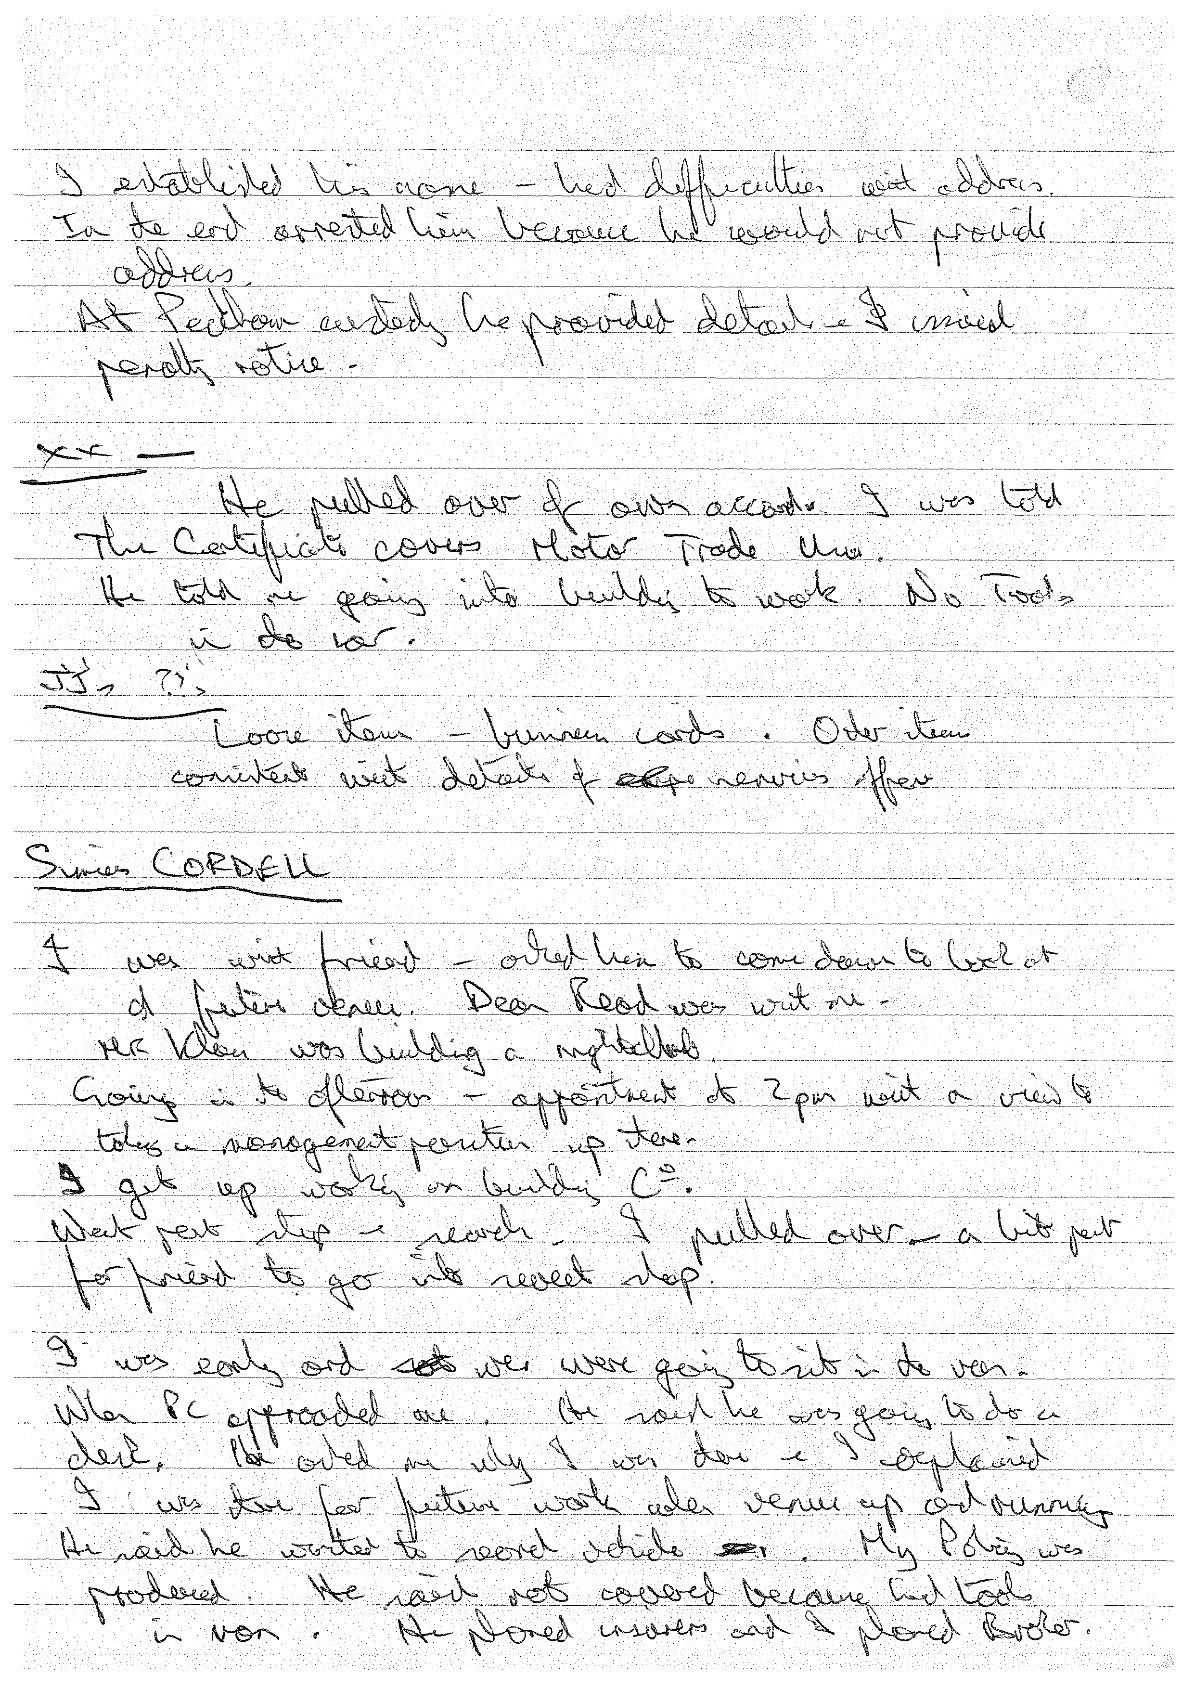 I established his name – had difficulties with address.
In the end arrested him because he would not provide
address.
At Peckham custody he provided details – I issued
penalty notice –
XX —
He pulled over of own accord. I was told
The Certificate covers Motor Trade Use.
He told me going into building to work. No Tools
in the car.
JJ's ?'s
Loose items – business cards. Other items
consistent with details of services offer
CORDELL
I was with friend – asked him to come down to look at
a future venue. Dean Read was with me –
MR Khan was building a nightclub.
Going in the afternoon – appointment at 2pm with a view to
taking a management position up there.
I get up working on building Co.
Went past shop – I pulled over – a bit past
for friend to go into sweet shop.
I was early and we were going to sit in the van.
When PC approached me. He said he was going to do a
check. He asked me why I was there – I explained
I was there for future work when venue up and running
He said he wanted to search vehicle. My Policy was
produced. He said not covered because had tools
in van. He phoned insurers and I phoned Broker.